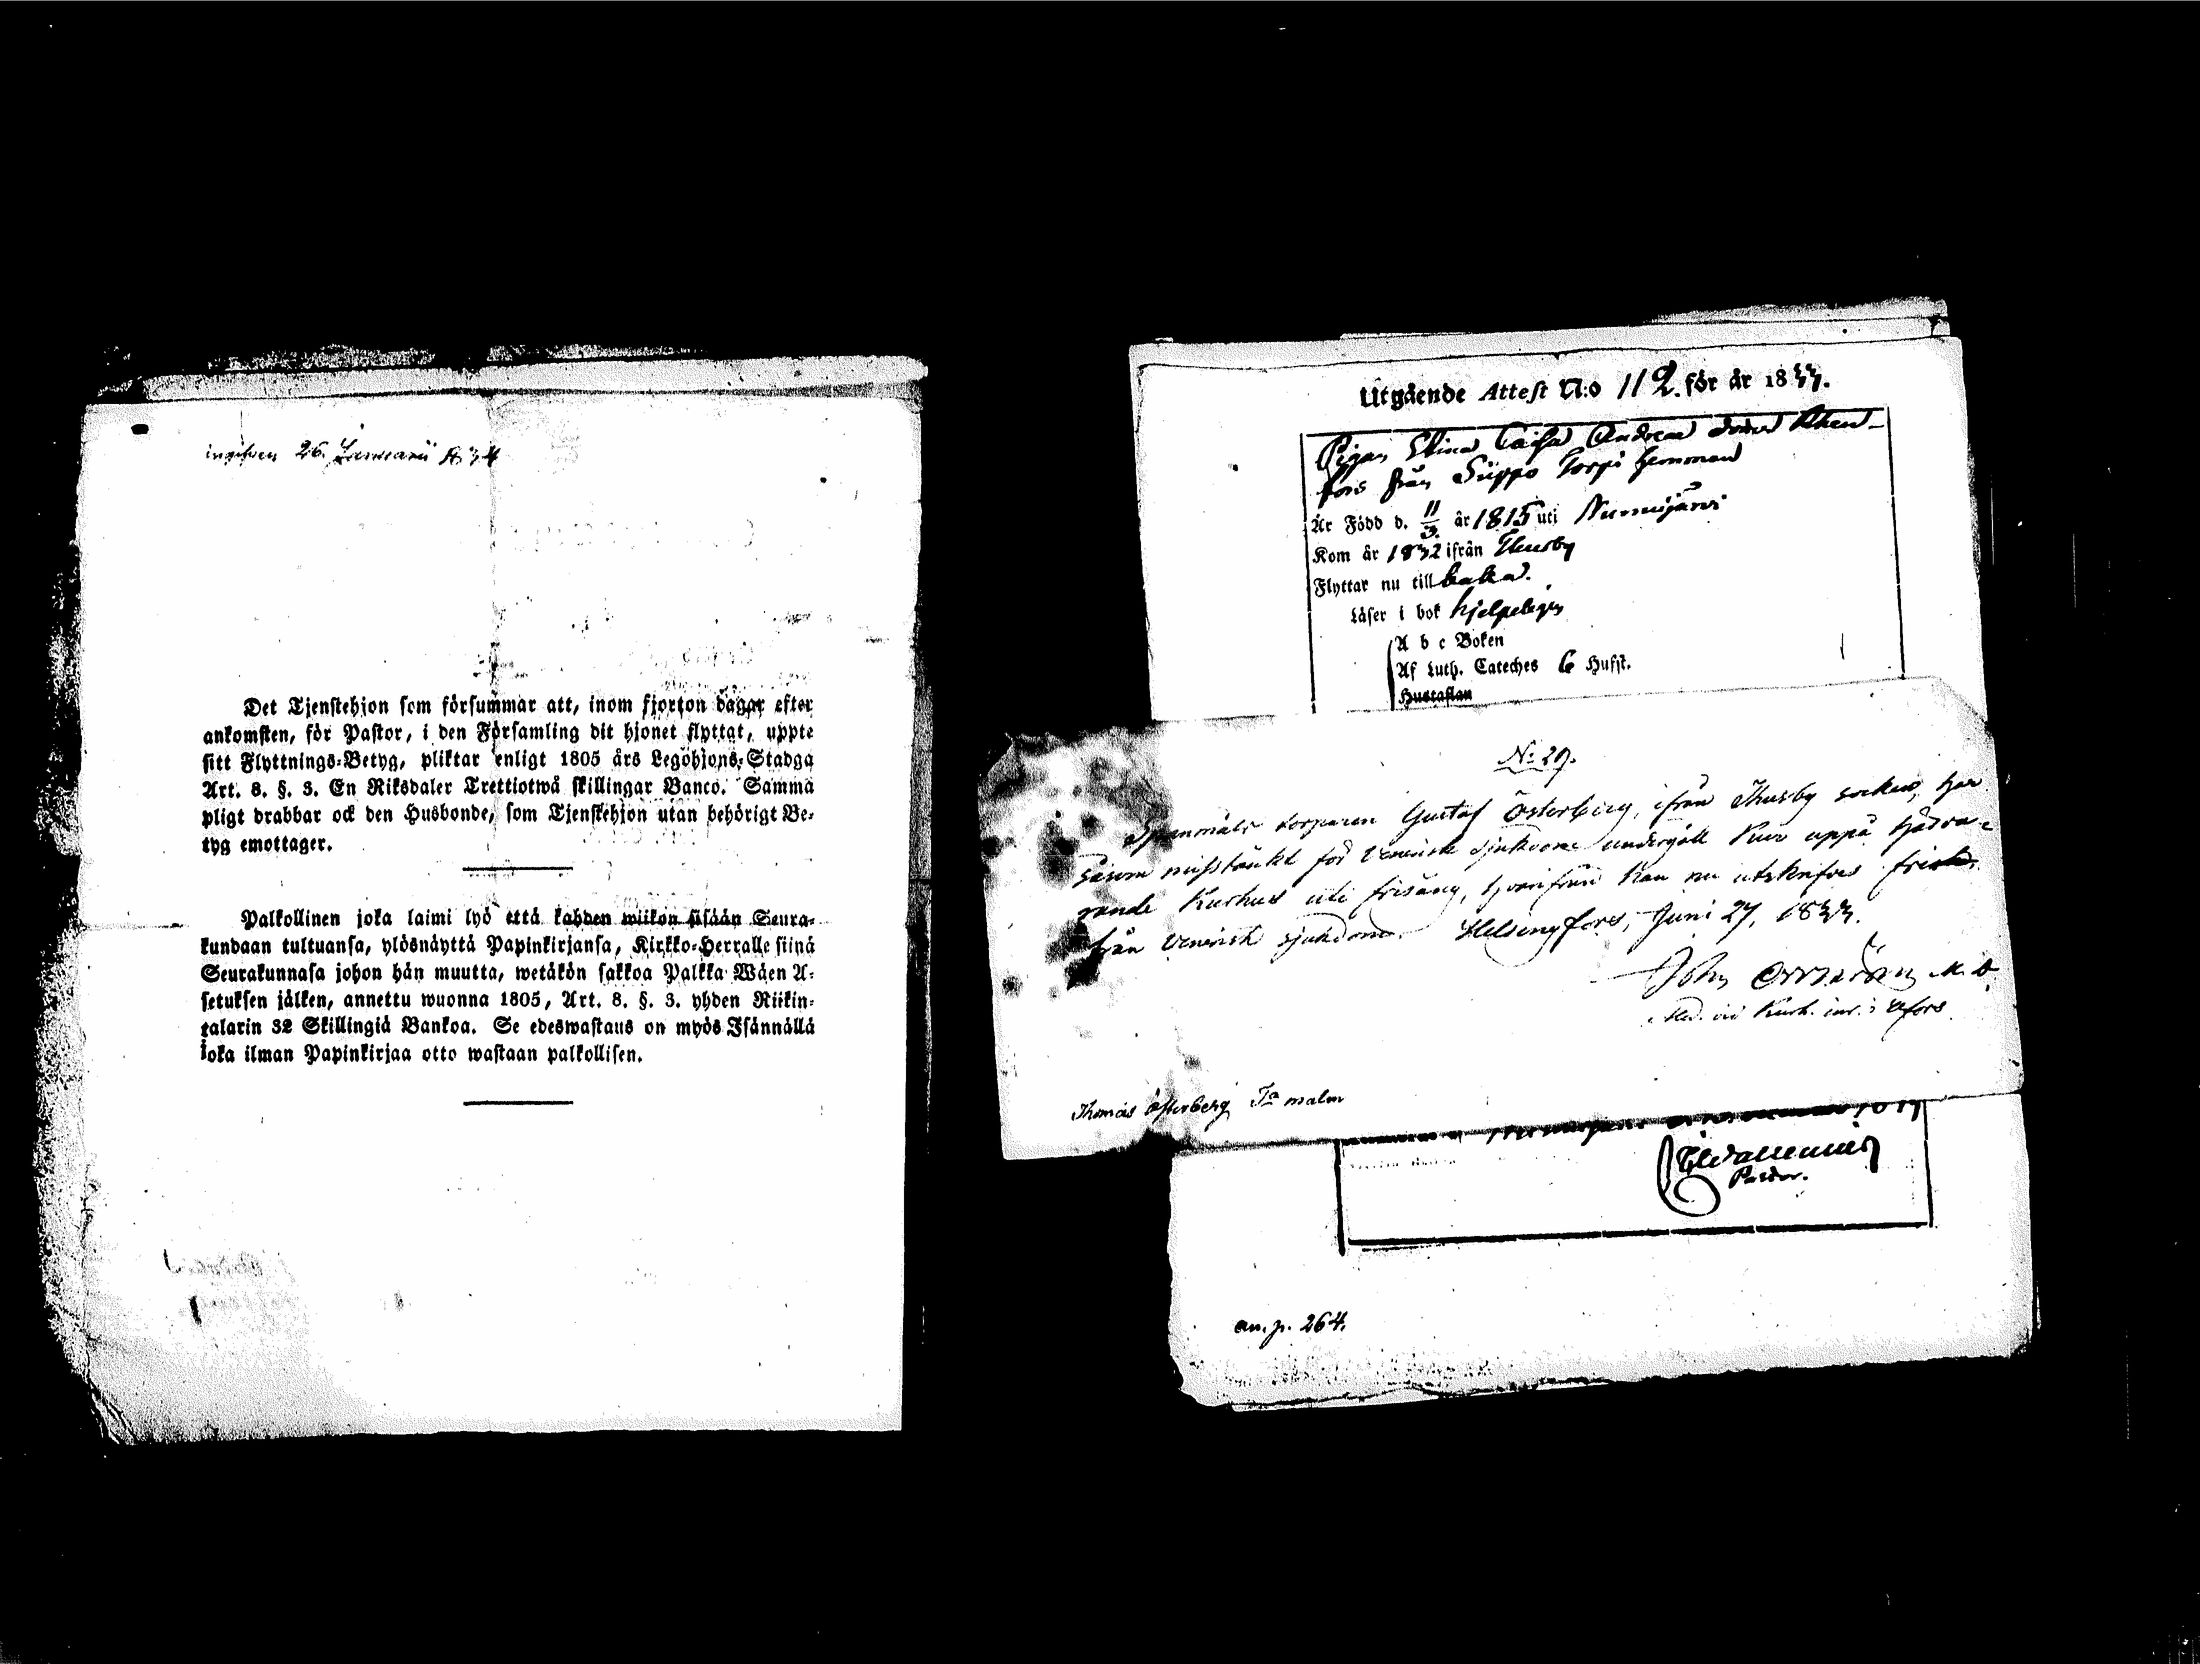 ingifven 26. Januarii 1834
Det Tjenstehjon som försummar att, inom fjorton dagar efter
ankomsten, för Pastor, i den Församling dit hjonet flyttat, uppte
sitt Flyttnings-Betyg, pliktar enligt 1805 års Legohjons-Stadga
Art. 8. §. 3. En Riksdaler Trettiotwå skillingar Banco. Samma
pligt drabbar ock den Husbonde, som Tjenstehjon utan behörigt Be-
tyg emottager.
Palkollinen joka laimi lyö että kahden wiikon sisään Seura-
kundaan tultuansa, ylösnäyttä Papinkirjansa, Kirkko-Herralle siinä
Seurakunnasa johon hän muutta, wetäkön sakkoa Palkka Wäen A-
setuksen jälken, annettu wuonna 1805, Art. 8. §. 3. yhden Riikin-
talarin 32 Skillingiä Bankoa. Se edeswastaus on myös Isännällä
joka ilman Papinkirjaa otto wastaan palkollisen.
Utgående Attest N:o 112. för år 1833.
Pigan Stina Caisa Andreae dotter
fors från Suppo Torpi hemman
Är Född d. 11/3 år 1815 uti Nurmijärvi
Kom år 1832 ifrån Thusby
Flyttar nu till baka.
Läser i bok hjelpeligen
A b c Boken
Af Luth. Cateches 6 Hufst.
Hustaflan
N:o 29.
torparen Gustaf Österberg, ifrån Thusby socken, har
såsom misstänkt för Venerisk sjukdom undergått Kur uppå härva-
rande Kurhus uti frisäng, hvarifrån han nu utskrifves frisk
från Venerisk sjukdom. Helsingfors, Juni 27, 1833.
John M. D
Med. vid Kurh. inr. i Hfors.
Thomas Österberg malm
Pastor.
an. p. 264.